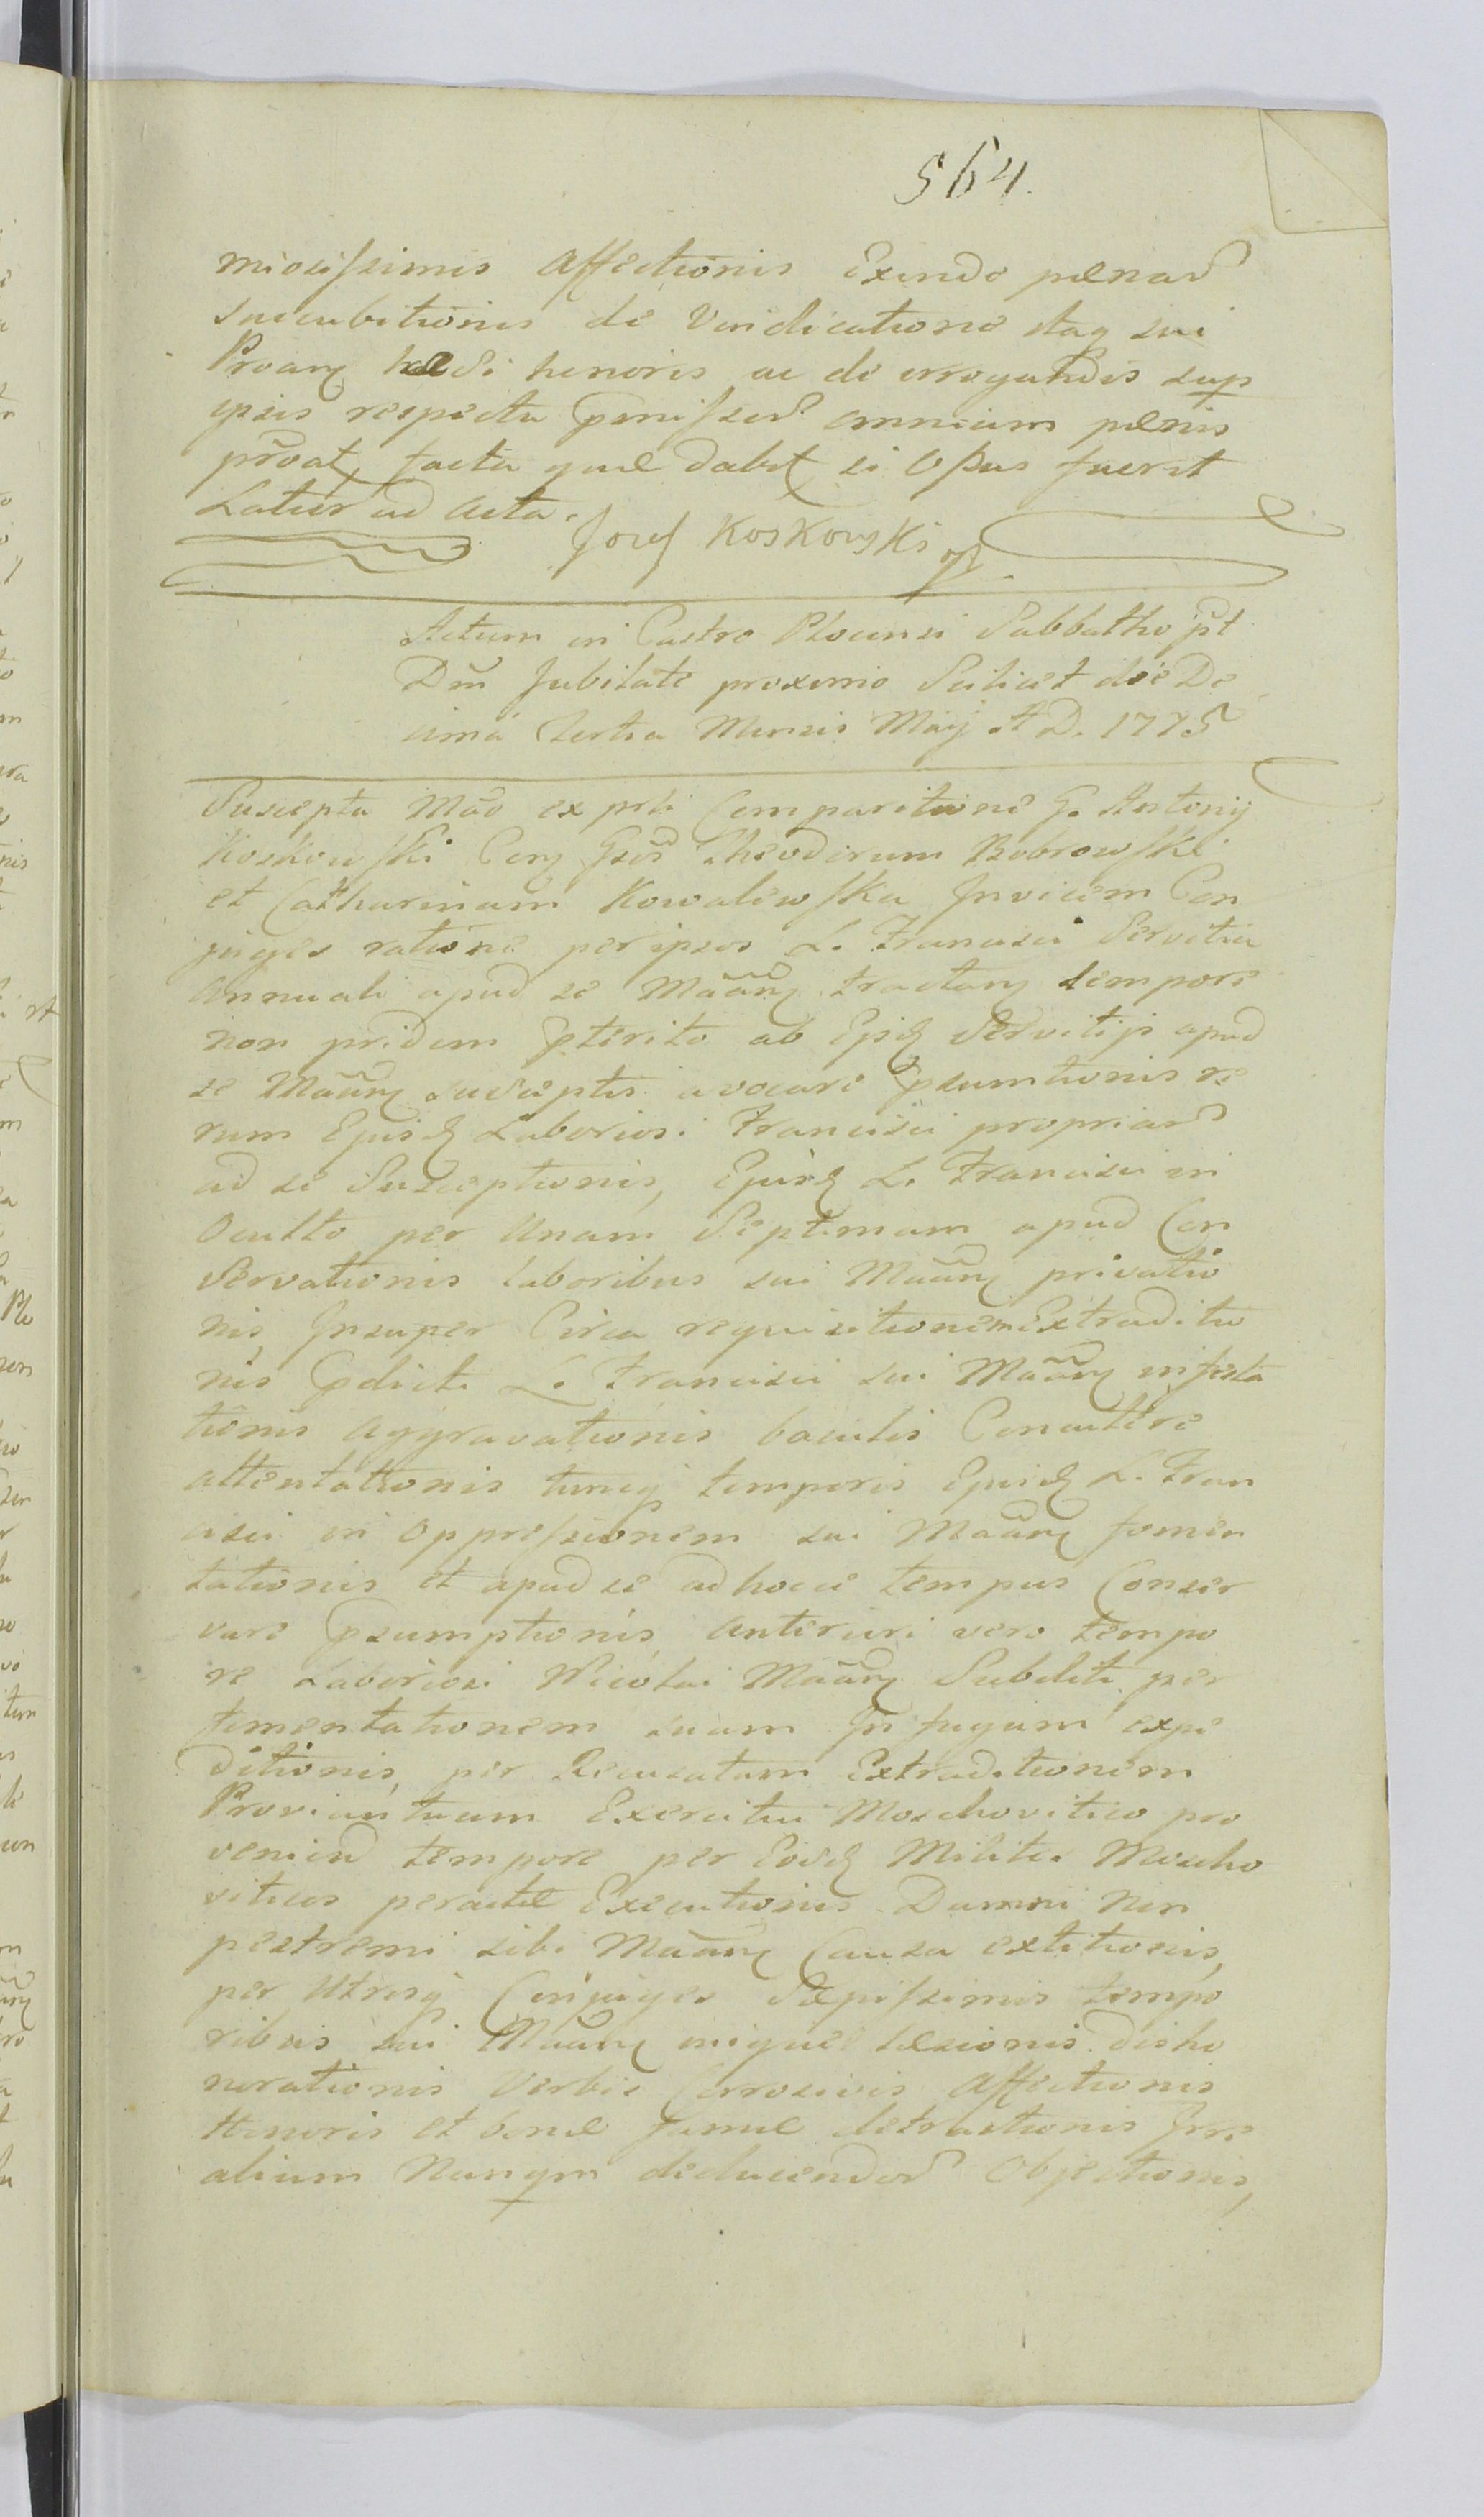 564.
miosissimis Affectionis Exinde pænar
succubitionis de Vindicatione stag sui
Proang læsi honoris ac de irrogandis sup
ipsis respectu Pmissor omnium pænis
proat, facta quæ dabit si Opus fuerit
Latius ad Acta.
Jozef Koskowski
Actum in Castro Plocensi Sabbatho pt
Dm Jubilate proximo Scilicet die De
cima tertia Mensis Maij A D. 1775
Suscepta Mao ex prti Comparitione G. Antonij
Koskowski Cong Gsos Theodorum Bobrowski
et Catharinam Kowalewska Invicem Con
juges ratione per ipsos L. Francisci Servitia
Annuali apud se Maang tractang tempore
non pridem Pterito ab Ejsq Servitijs apud
se Maang susceptis avocare Psumtionis re
rum Ejusq Laboriosi Francisci propriar
ad se Susceptionis, Ejusq L. Francisci in
Oculto per Unam Septimam apud Con
Servationis laboribus sui Maang privatio
nis, Insuper Circa requisitionem Extraditio
nis Pdicti L. Francisci sui Maang infesta
tionis Aggravationis baculis Concutere
attentationis tuncq temporis Ejusq L. Fran
cisci in Oppressionem sui Maang fomen
tationis et apud se adhocce tempus Conser
vare Psumptionis Anteriori vero tempo
re Laboriosi Nicolai Maang Subditi per
fomentationem suam In fugam expe
ditionis, per Recusatam Extraditionem
Proviantuum Exercitui Moschovitico pro
venien tempore per Eosq Milites Moscho
viticos peractæ Executionis Damni non
postremi sibi Maang Causa extitionis,
per Utrosq Conjuges Sæpissimis tempo
ribus sui Maang inique læsionis disho
norationis Verbis Corrosivis Affectionis
Honoris et bonæ famæ detractionis Irre
alium Nunqm deducendor Objectionis,